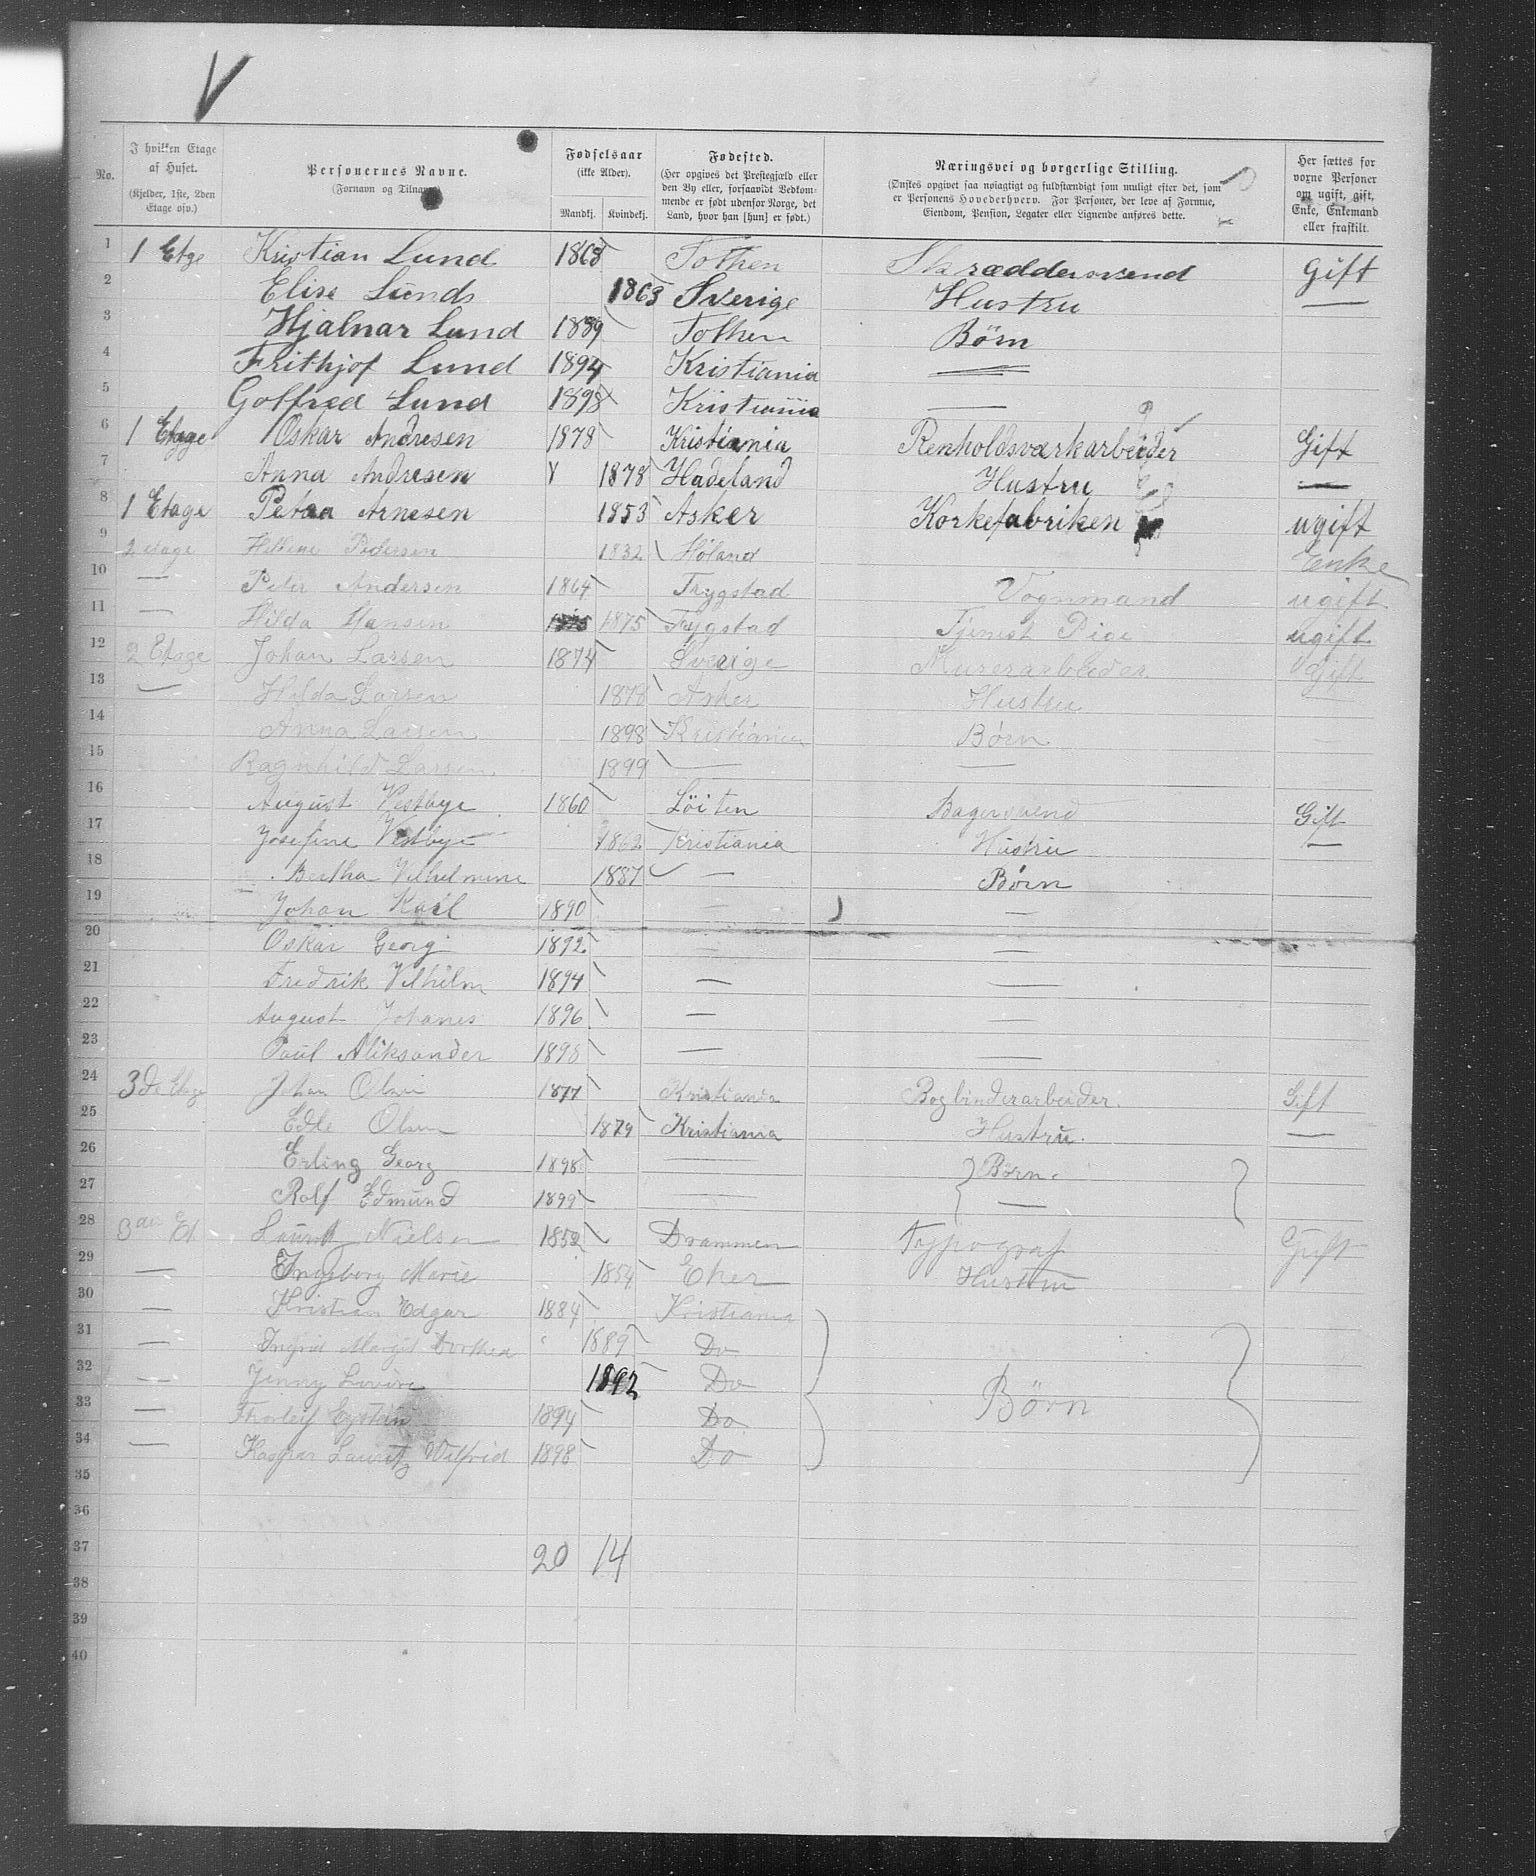 V
No.
I hvilken Etage af Huset. (Kjelder, 1ste, 2den Etage osv.)
Personernes Navne. (Fornavn og Tilnavn.)
Fødselsaar (ikke Alder). Mandkj. Kvindekj.
Fødested. (Her opgives det Prestegjæld eller den By eller, forsaavidt Vedkommende er født udenfor Norge, det Land, hvor han [hun] er født.)
Næringsvei og borgerlige Stilling. (Ønskes opgivet saa nøiagtigt og fuldstændigt som muligt efter det, som er Personens Hovederhverv. For Personer, der leve af Formue, Eiendom, Pension, Legater eller Lignende anføres dette.
Her sættes for voxne Personer om ugift, gift, Enke, Enkemand eller fraskilt.
1 1 Etge Kristian Lund 1868 Tothen Skrædder Gift
2 Elise Lunds 1863 Sverige Hustru —
3 Hjalmar Lund 1889 Tothen Børn
4 Frithjof Lund 1894 Kristiania —
5 Golfred Lund 1898 Kristiania —
6 1 Etage Oskar Andresen 1878 Kristiania Renholdsværkarbeider Gift
7 Anna Andresen 1878 Hadeland Hustru —
8 1 Etage Petra Arnesen 1853 Asker Korkefabriken ugift
9 2 etage Hellene Pedersen 1832 Høland Enke
10 — Peter Andersen 1864 Trygstad Vognmand ugift
11 — Hilda Hansen 1875 Trygstad Tjenest Pige ugift
12 2 Etage Johan Larsen 1874 Sverige Murerarbeider Gift
13 — Hilda Larsen 1878 Asker Hustru
14 Anna Larsen 1898 Kristiania Børn
15 Ragnhild Larsen 1899 — —
16 August Vestbye 1860 Löiten Bagersvend Gift
17 Josefine Vestbye 1862 Kristiania Hustru —
18 Bertha Vilhelmine 1887 — Børn
19 Johan Karl 1890 — —
20 Oskar Georg 1892 — —
21 Fredrik Vilhelm 1894 — —
22 August Johanes 1896 — —
23 Paul Aliksander 1898 — —
24 3de Etage Johan Olsen 1877 Kristiania Bogbinderarbeider. Gift
25 Edle Olsen 1879 Kristiania Hustru. —
26 Erling Georg 1898 — Børn.
27 Rolf Edmund 1899 — —
28 3die Et Nielsen 1852 Drammen Typograf Gift
29 — Ingeborg Marie 1854 Eker Hustru
30 — Kristian Edgar 1884 Kristiania
31 — Ingrid Margit Dorthea 1889 Do
32 — Jenny 1892 Do Børn
33 — Thorleif Eystein 1894 Do
34 — Kaspar Lauritz Wilfrid 1898 Do
35
36
37 20 14
38
39
40